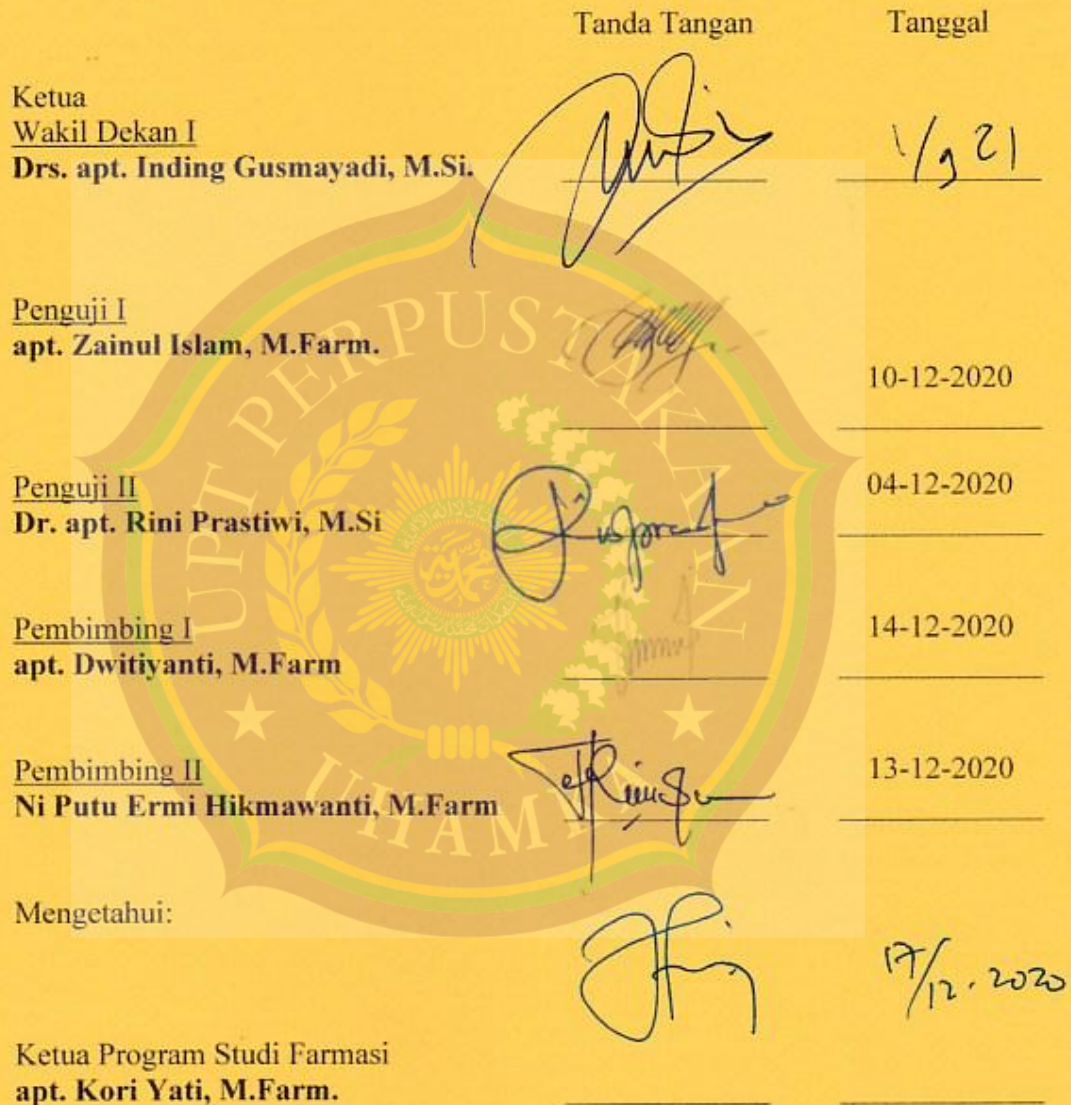 Tanda Tangan Tanggal
Ketua
Wakil Dekan I
Drs. apt. Inding Gusmayadi, M.Si. 1/9 21
Penguji I
apt. Zainul Islam, M.Farm.
10-12-2020
Penguji II 04-12-2020
Dr. apt. Rini Prastiwi, M.Si
Pembimbing I 14-12-2020
apt. Dwitiyanti, M.Farm
Pembimbing II 13-12-2020
Ni Putu Ermi Hikmawanti, M.Farm
Mengetahui:
17/12.2020
Ketua Program Studi Farmasi
apt. Kori Yati, M.Farm.
UPT PERPUSTAKAAN
UHAMKA